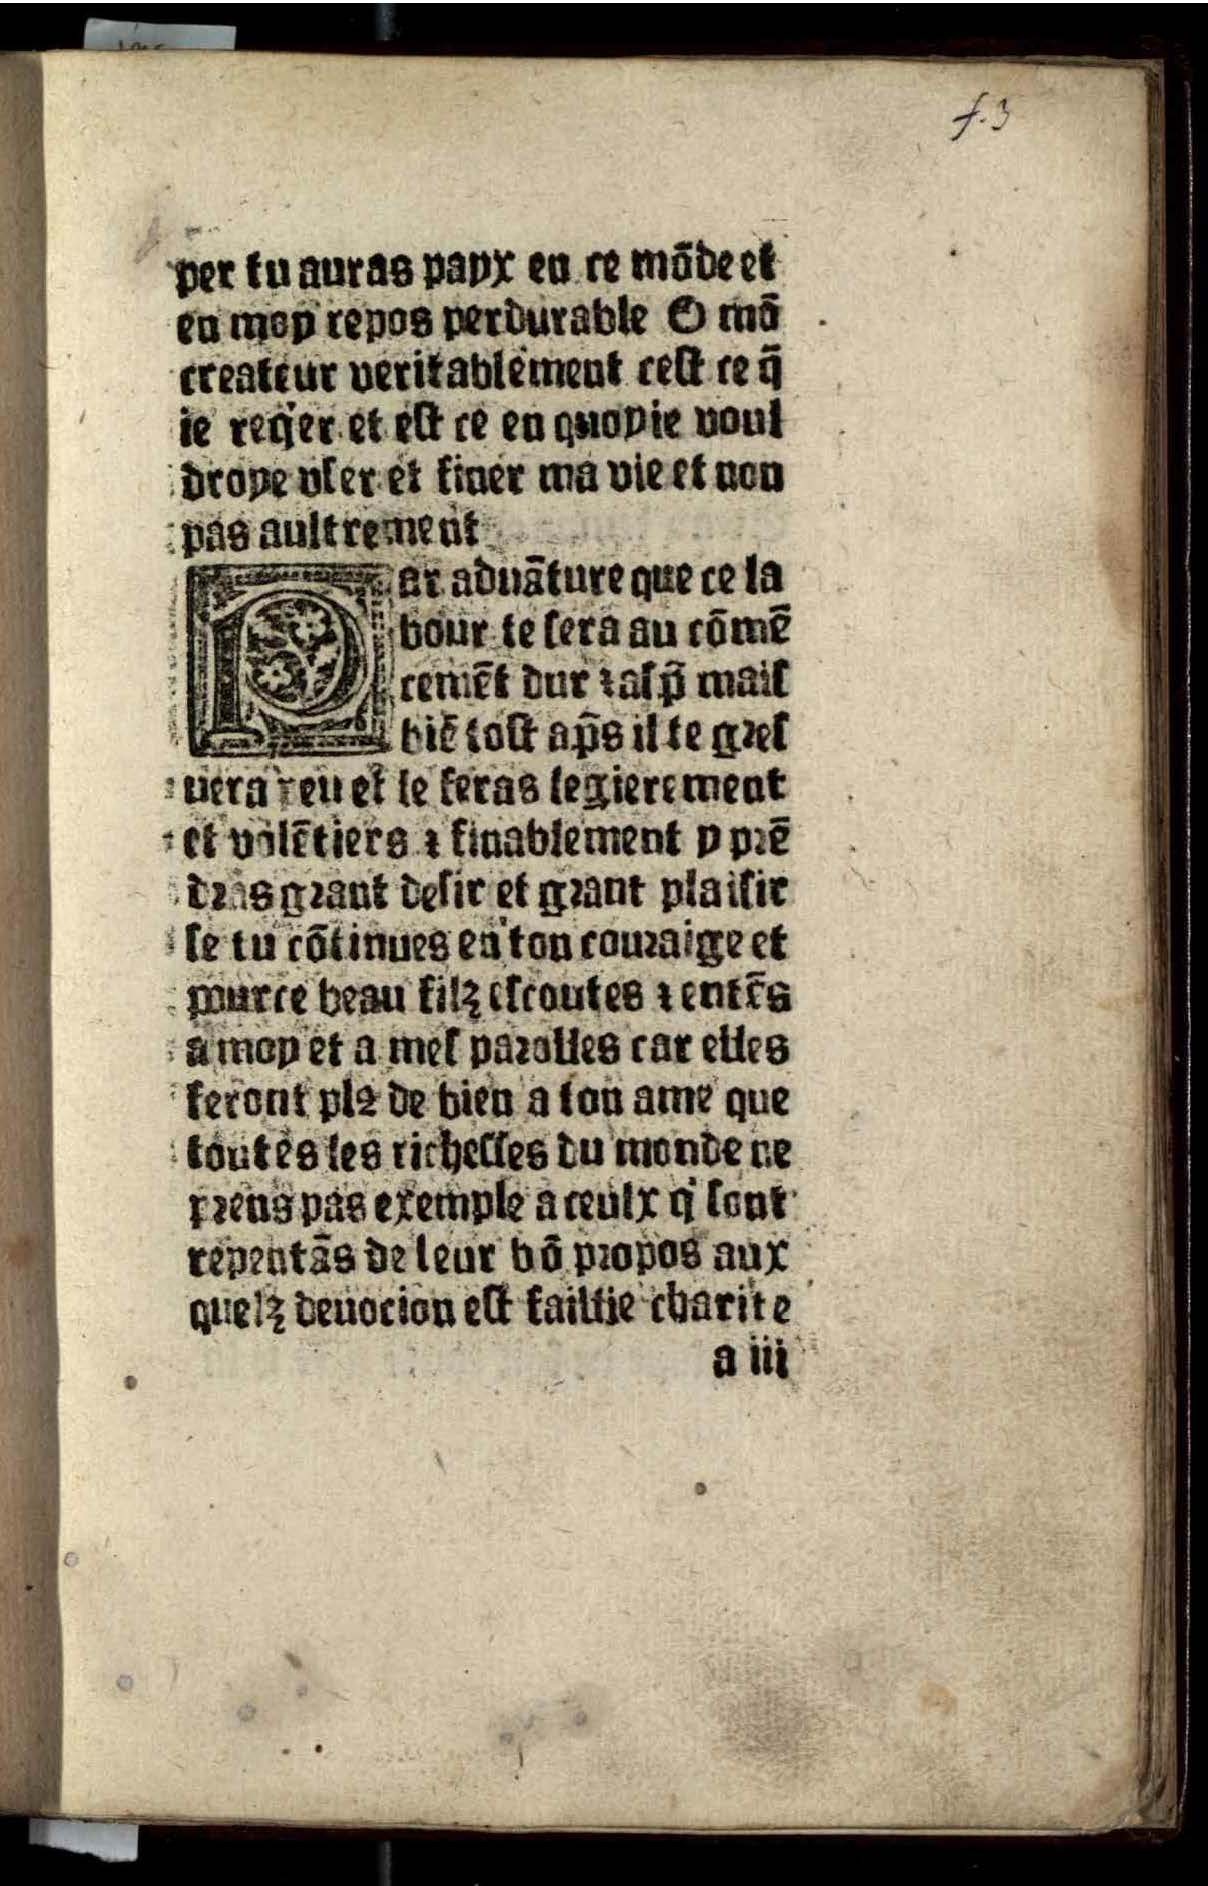 f. 3
per tu auras payx en ce mõde et
en moy repos perdurable O mõ
createur veritablement cest ce q̃
ie reqier et est ce en quoy ie voul
droye vser et finer ma vie et non
pas aultrement
Par aduãture que ce la
bour te sera au cõmẽ
cemẽt dur ⁊ asp̃ mais
biẽ tost ap̃s il te gres
uera peu et le feras legierement
et volẽtiers ⁊ finablement y prẽ
dras grant desir et grant plaisir
se tu cõtinues en ton couraige et
pource beau filz escoutes ⁊ entẽs
a moy et a mes parolles car elles
feront plꝰ de bien a ton ame que
toutes les richesses du monde ne
prens pas exemple a ceulx qͥ sont
repentãs de leur bõ propos aux
quelz deuocion est faillie charite
a iii